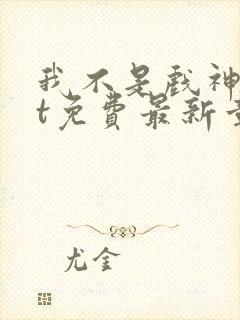 我不是戏神
t免费最新章
尤金